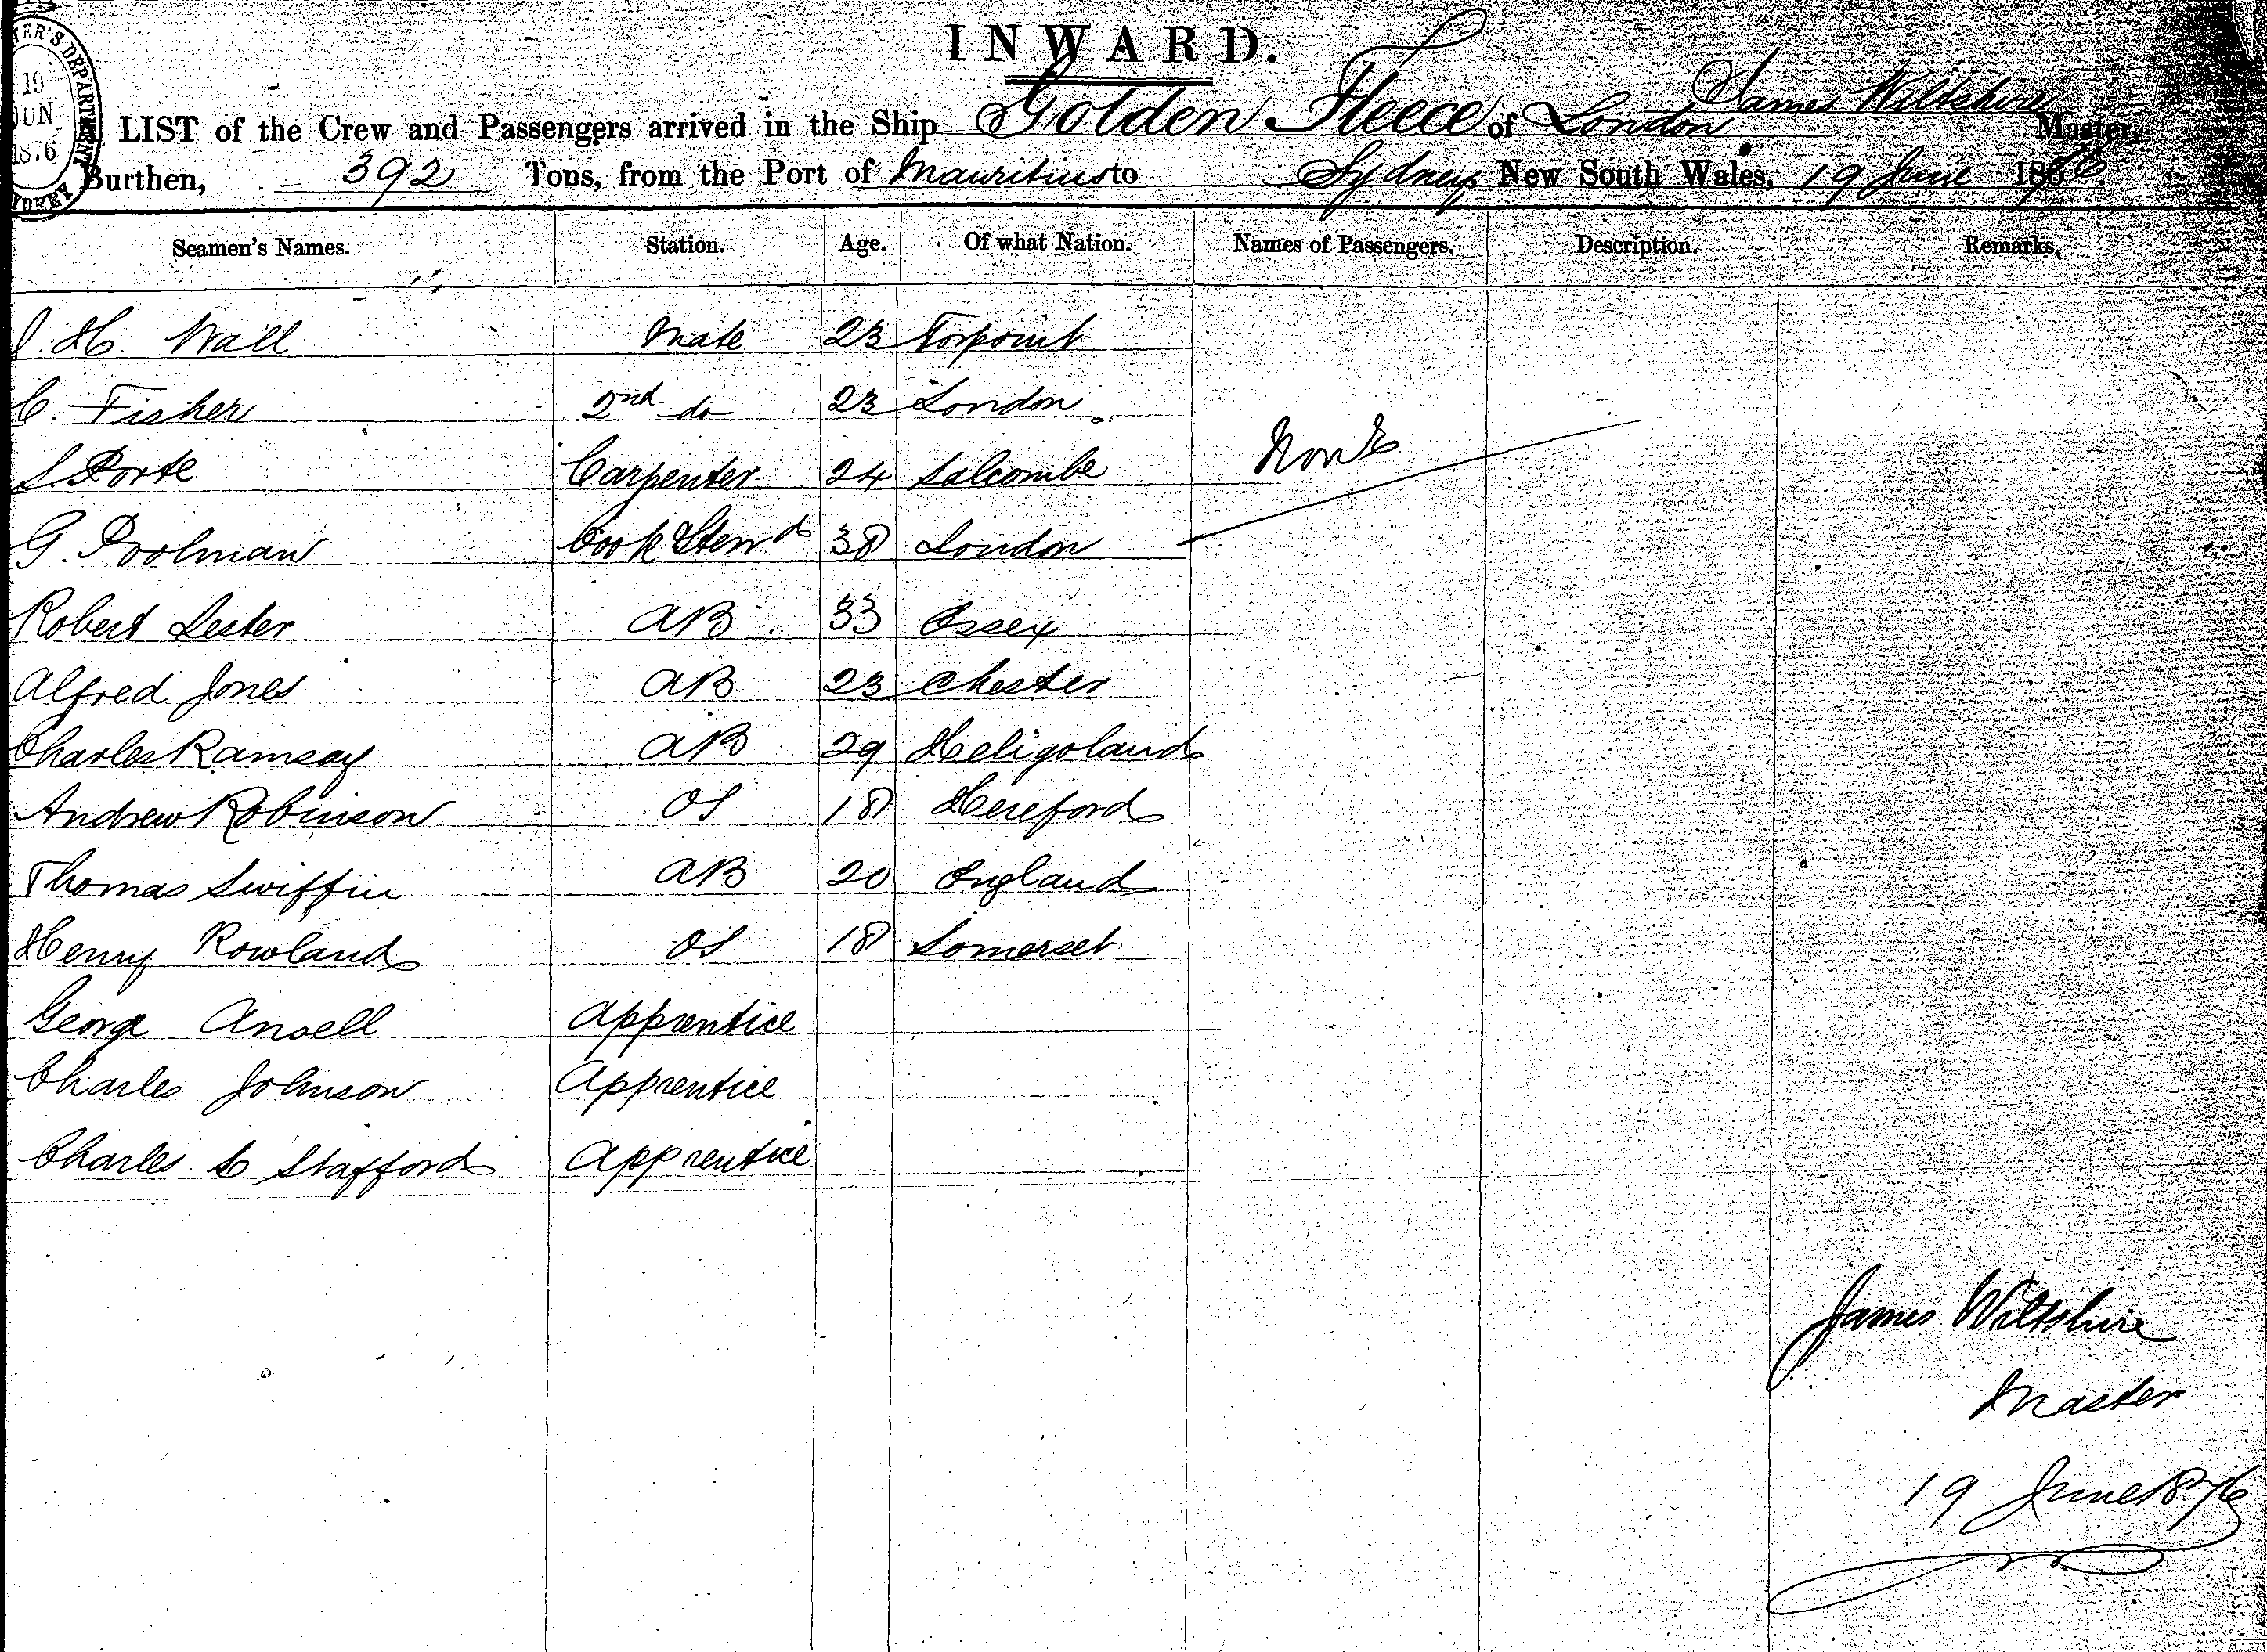 INWARD.
TER'S DEPARTMENT
19
JUN
1876
SYDNEY
James Wiltshire
LIST of the Crew and Passengers arrived in the Ship Golden Fleece of London Master,
Burthen, 392 Tons, from the Port of Mauritius to Sydney, New South Wales, 19 June 1876
Seamen's Names. Station. Age. Of what Nation. Names of Passengers. Description. Remarks.
J. H. Wall Mate 23 Torpoint
C. Fisher 2nd do 23 London
S Porte Carpenter 24 Salcombe None
G. Poolman Cook & Stewd 38 London
Robert Lester AB 33 Essex
Alfred Jones AB 23 Chester
Charles Ramsay AB 29 Heligoland
Andrew Robinson OS 18 Hereford
Thomas Swiffin AB 20 England
Henry Rowland OS 18 Somerset
George Ansell Apprentice
Charles Johnson Apprentice
Charles C Stafford Apprentice
James Wiltshire
Master
19 June 1876